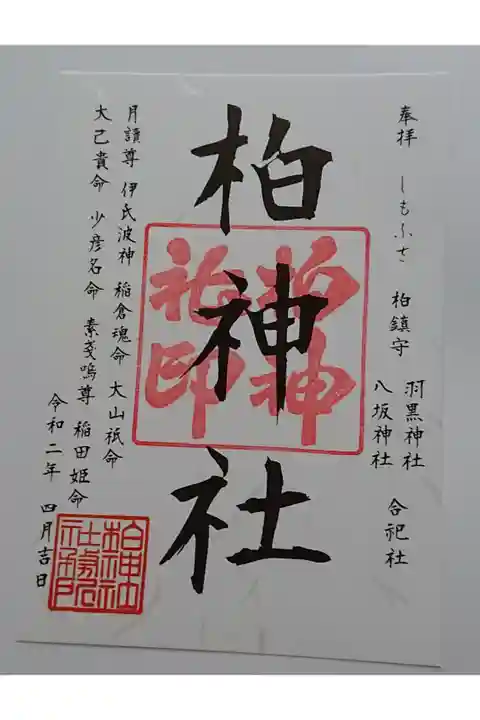 奉拝 しもふさ 柏鎮守 羽黒神社 八坂神社 合祀社
柏神社
柏神
社印
月讀尊 伊氏波神 稲倉魂命 大山祇命
大己貴命 少彦名命 素戔嗚尊 稲田姫命
令和二年 四月吉日